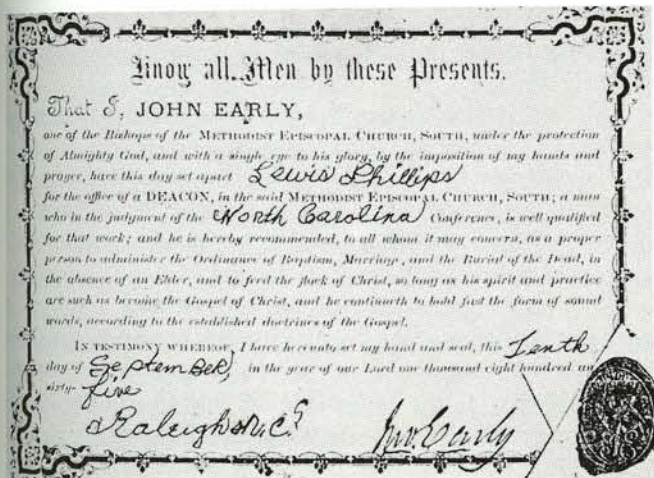 Know all Men by these Presents.
That I, JOHN EARLY,
one of the Bishops of the METHODIST EPISCOPAL CHURCH, SOUTH, under the protection
of Almighty God, and with a single eye to his glory, by the imposition of my hands and
prayer, have this day set apart Lewis Phillips
for the office of a DEACON, in the said METHODIST EPISCOPAL CHURCH, SOUTH; a man
who in the judgment of the North Carolina Conference, is well qualified
for that work; and he is hereby recommended, to all whom it may concern, as a proper
person to administer the Ordinance of Baptism, Marriage, and the Burial of the Dead, in
the absence of an Elder, and to feed the flock of Christ, so long as his spirit and practice
are such as become the Gospel of Christ, and he continueth to hold fast the form of sound
words, according to the established doctrines of the Gospel.
IN TESTIMONY WHEREOF, I have hereunto set my hand and seal, this Tenth
day of September, in the year of our Lord one thousand eight hundred an
sixty-five
Raleigh N.C. Jno Early